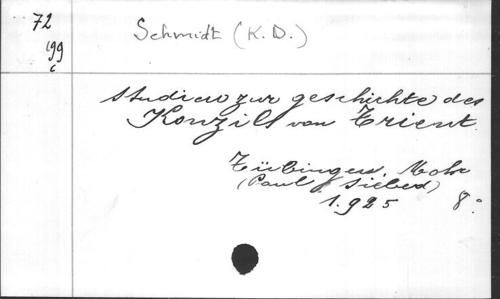 72
199
c
Schmidt (K. D.)
Studien zur geschichte des
Konzils von Trient.
Tübingen, Mohr
(Paul Siebed)
1.925 8°